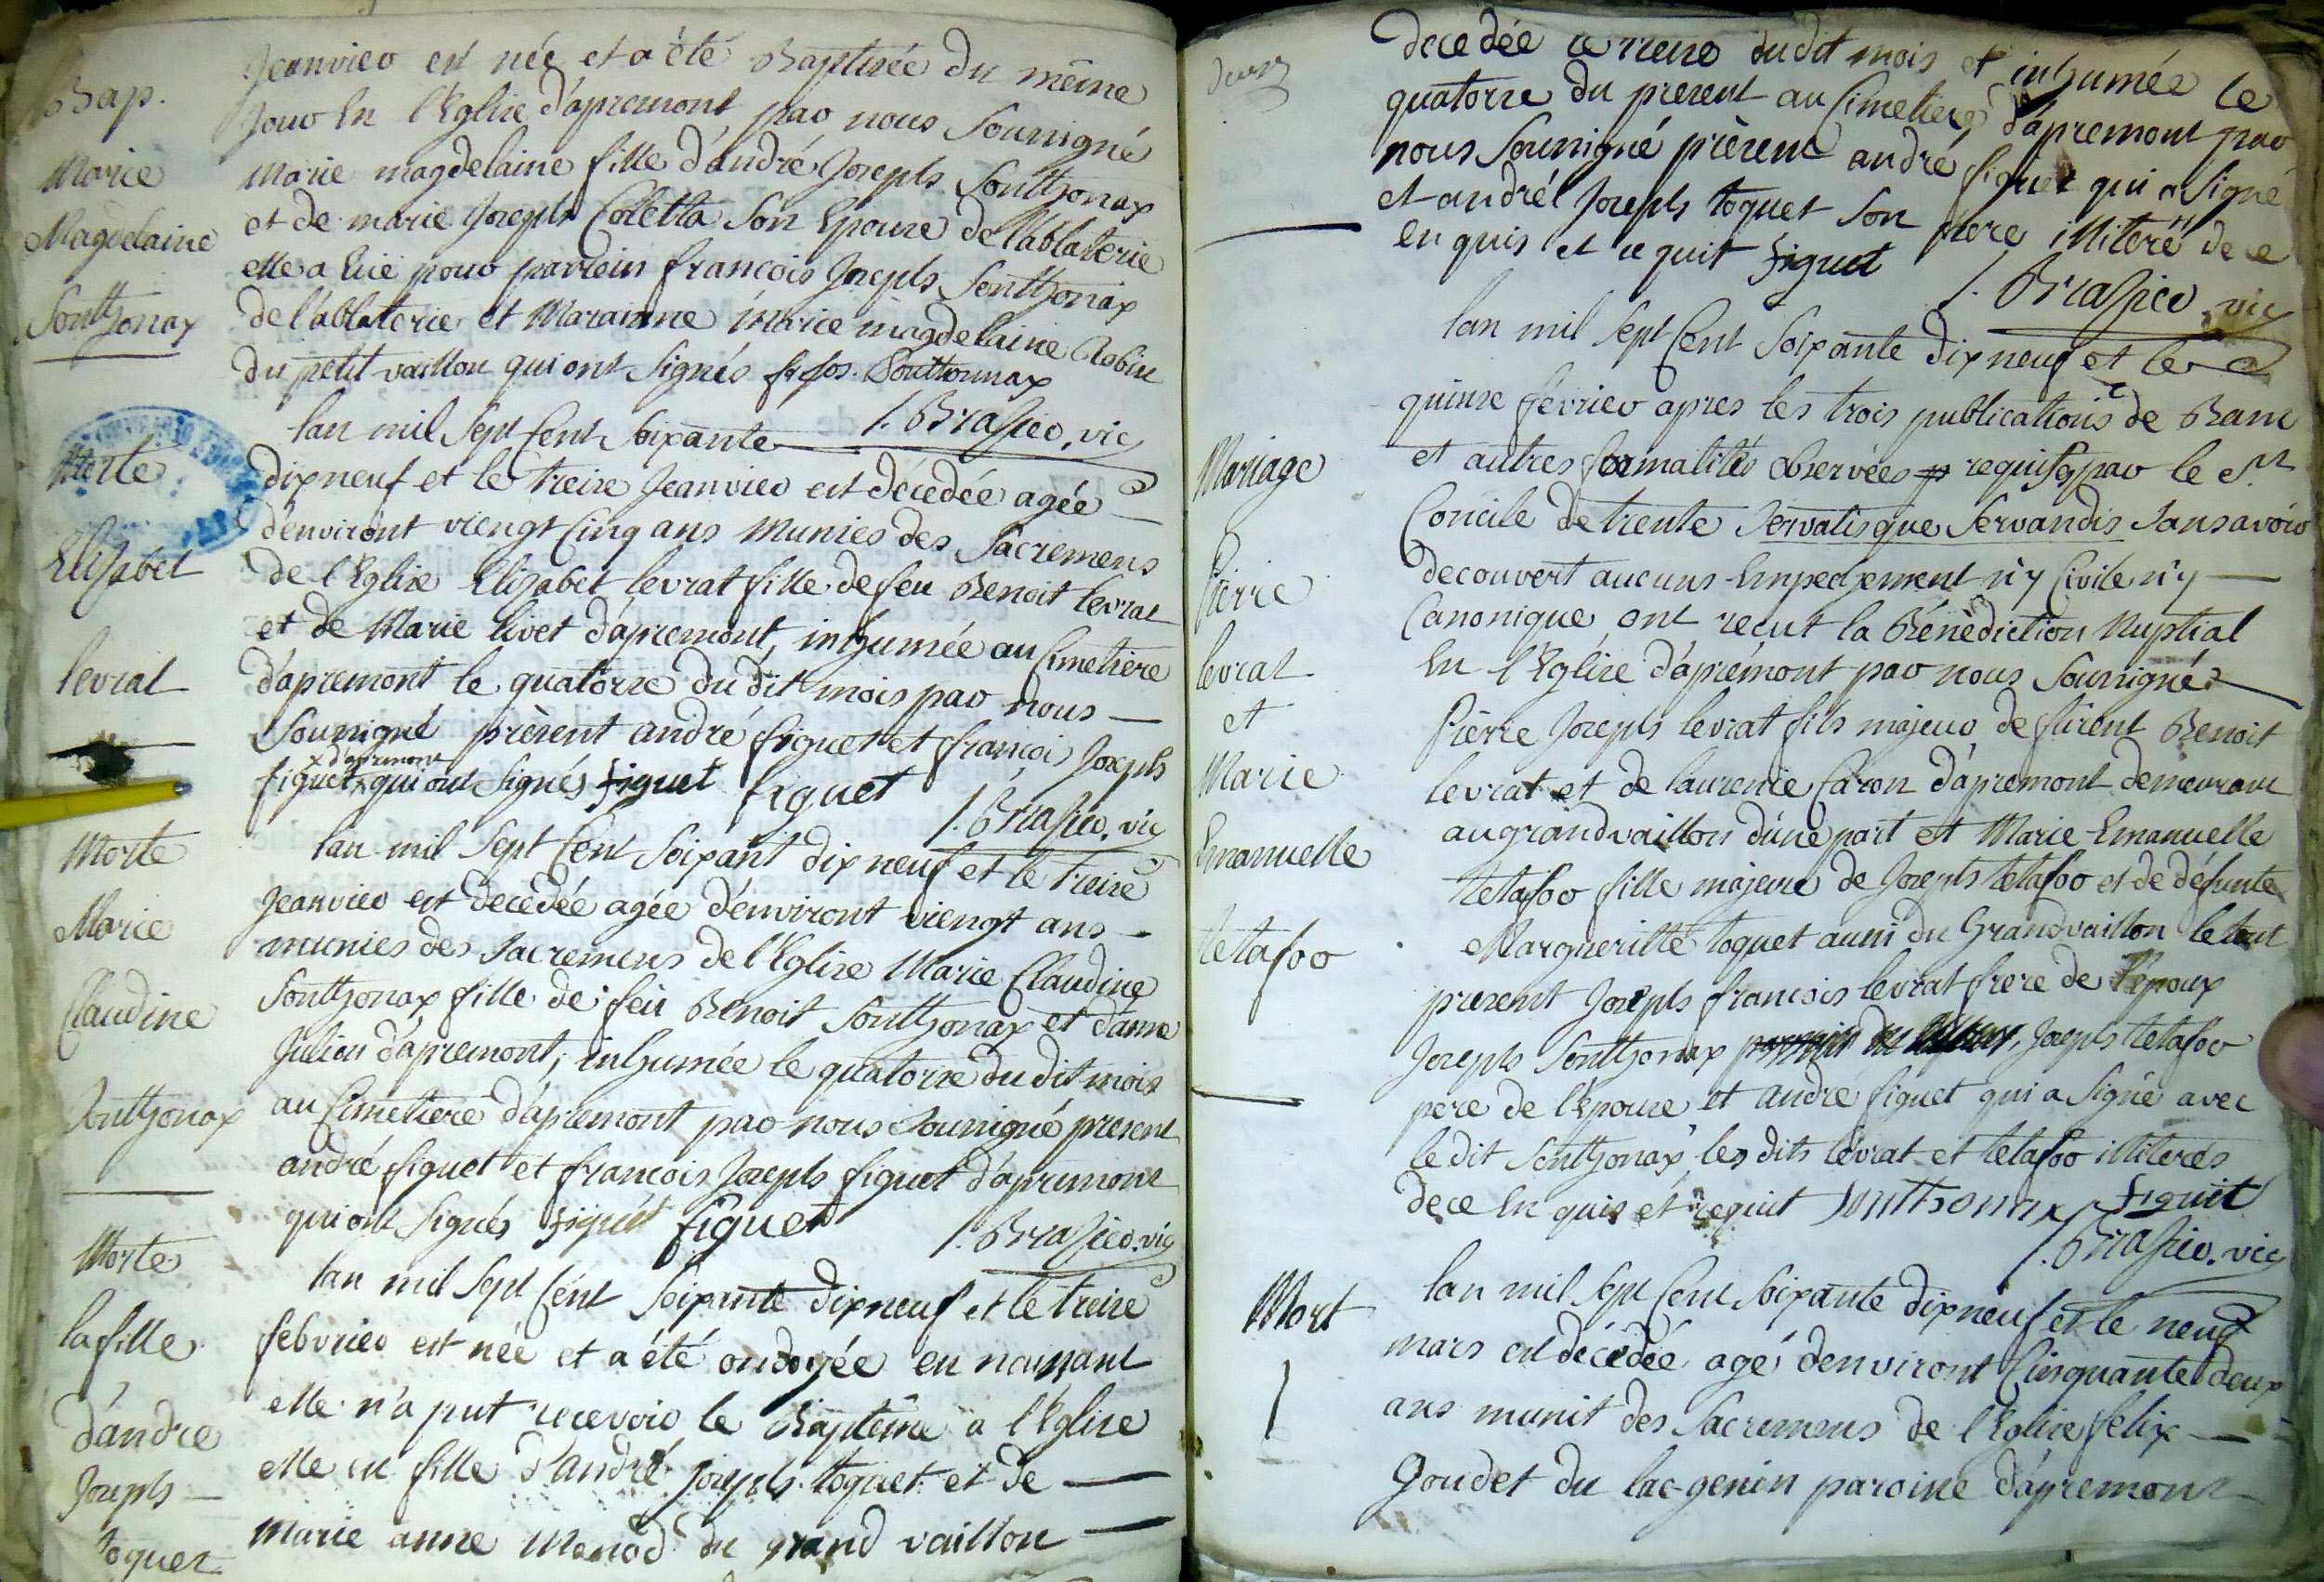 Bap.
Marie
Magdelaine
Sonthonax
Jeanvier est née et a été Baptisée du même
Jour En l'Eglise d'apremont par nous Soussigné
Marie magdelaine fille d'andré Joseph Sonthonax
et de marie Joseph Colletta Son Epouse de l'ablaterie
elle a Eüe pour parrein francois Joseph Sonthonax
de l'ablaterie et Maranne marie magdelaine Robin
du petit vaillon qui ont Signés fr Jos. Sonthonnax
J. Brasier, vic
Morte
Elisabet
levrat
lan mil Sept Cent Soixante
dixneuf et le treize Jeanvier est décedée agée
d'environt viengt Cinq ans Munies des Sacremens
de l'Eglise Elizabet levrat fille de feu Benoit levrat
et de Marie livet d'apremont, inhumée au Cimetiere
d'apremont le quatorze du dit mois par nous
Soussigné présent andré figuet et francois Joseph
x d'apremont
figuet x qui ont Signés figuet figuet
J. Brasier, vic
Morte
Marie
Claudine
Sonthonax
lan mil Sept Cent Soixant dix neuf et le treize
Jeanvier est decedée agée d'environt viengt ans
munies des Sacremens de l'Eglise Marie Claudine
Sonthonax fille de feu Benoit Sonthonax et d'anne
Julien d'apremont, inhumée le quatorze du dit mois
au Cimetiere d'apremont par nous Soussigné present
andré figuet et francois Joseph figuet d'apremont
qui ont Signés figuet figuet
J. Brasier. vic
Morte
la fille
d'andre
Joseph
toquet
lan mil Sept Cent Soixante dixneuf et le treize
febvrier est née et a été ondoyée en naissant
elle n'a put recevoir le Baptême a l'Eglise
elle est fille d'andré Joseph toquet et de
marie anne Monod du grand vaillon
deux
decedée le treize du dit mois et inhumée le
quatorze du present au Cimetiere d'apremont par
nous Soussigné présent andré figuet qui a Signé
et andré Joseph toquet Son pere illiteré de ce
en quis et requit figuet
J. Brasier, vic
Mariage
Pierre
levrat
et
Marie
Emanuelle
tetafoo
lan mil Sept Cent Soixante dix neuf et le
quinze fevrier apres les trois publications de Banc
et autres formalités observées requises par le St
Concile de trente Servatis que Servandis Sans avoir
decouvert aucuns Empechement n'y Civile n'y
Canonique ont reçut la Bénédiction Nuptial
En l'Eglise d'apremont par nous Soussigné
Pierre Joseph levrat fils majeur de furent Benoit
levrat et de laurence Caron d'apremont demeurant
au grandvaillon d'une part et Marie Emanuelle
tetafoo fille majeure de Joseph tetafoo et de défunte
Margueritte toquet aussi du Grandvaillon le tout
present Joseph francois levrat frere de l'époux
Joseph Sonthonax Joseph tetafoo
pere de l'Epouse et andre figuet qui a Signé avec
le dit Sonthonax les dits levrat et tetafoo illiterés
de ce En quis et requit Sonthonax figuet
J. Brasier. vic
Mort
lan mil Sept Cent Soixante dix neuf et le neuf
mars est décédée agé denviront Cinquante deux
ans munit des Sacremens de l'Eglise felix
Goudet du lac-genin paroisse d'apremont